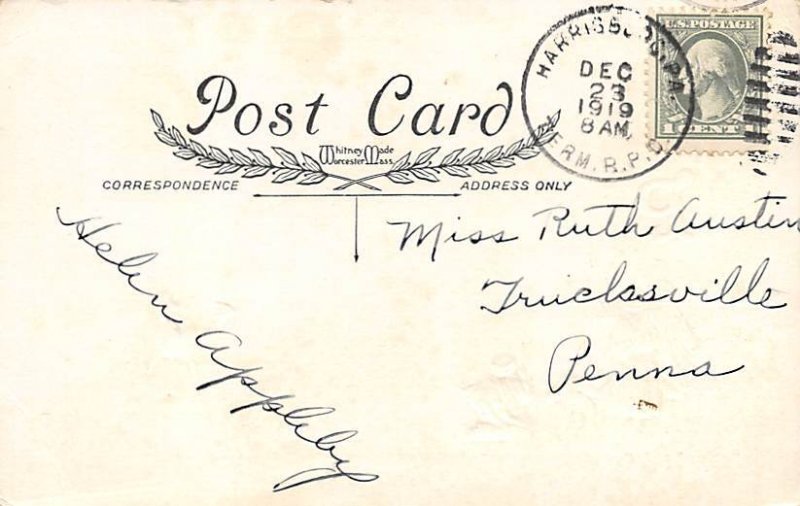 Post Card
Whitney Made
Worcester Mass.
CORRESPONDENCE
ADDRESS ONLY
HARRISBURG, PA.
DEC
23
1919
8 AM
TERM. R.P.O.
U.S. POSTAGE
1 CENT 1
Miss Ruth Austin
Trucksville
Penna
Helen Appleby